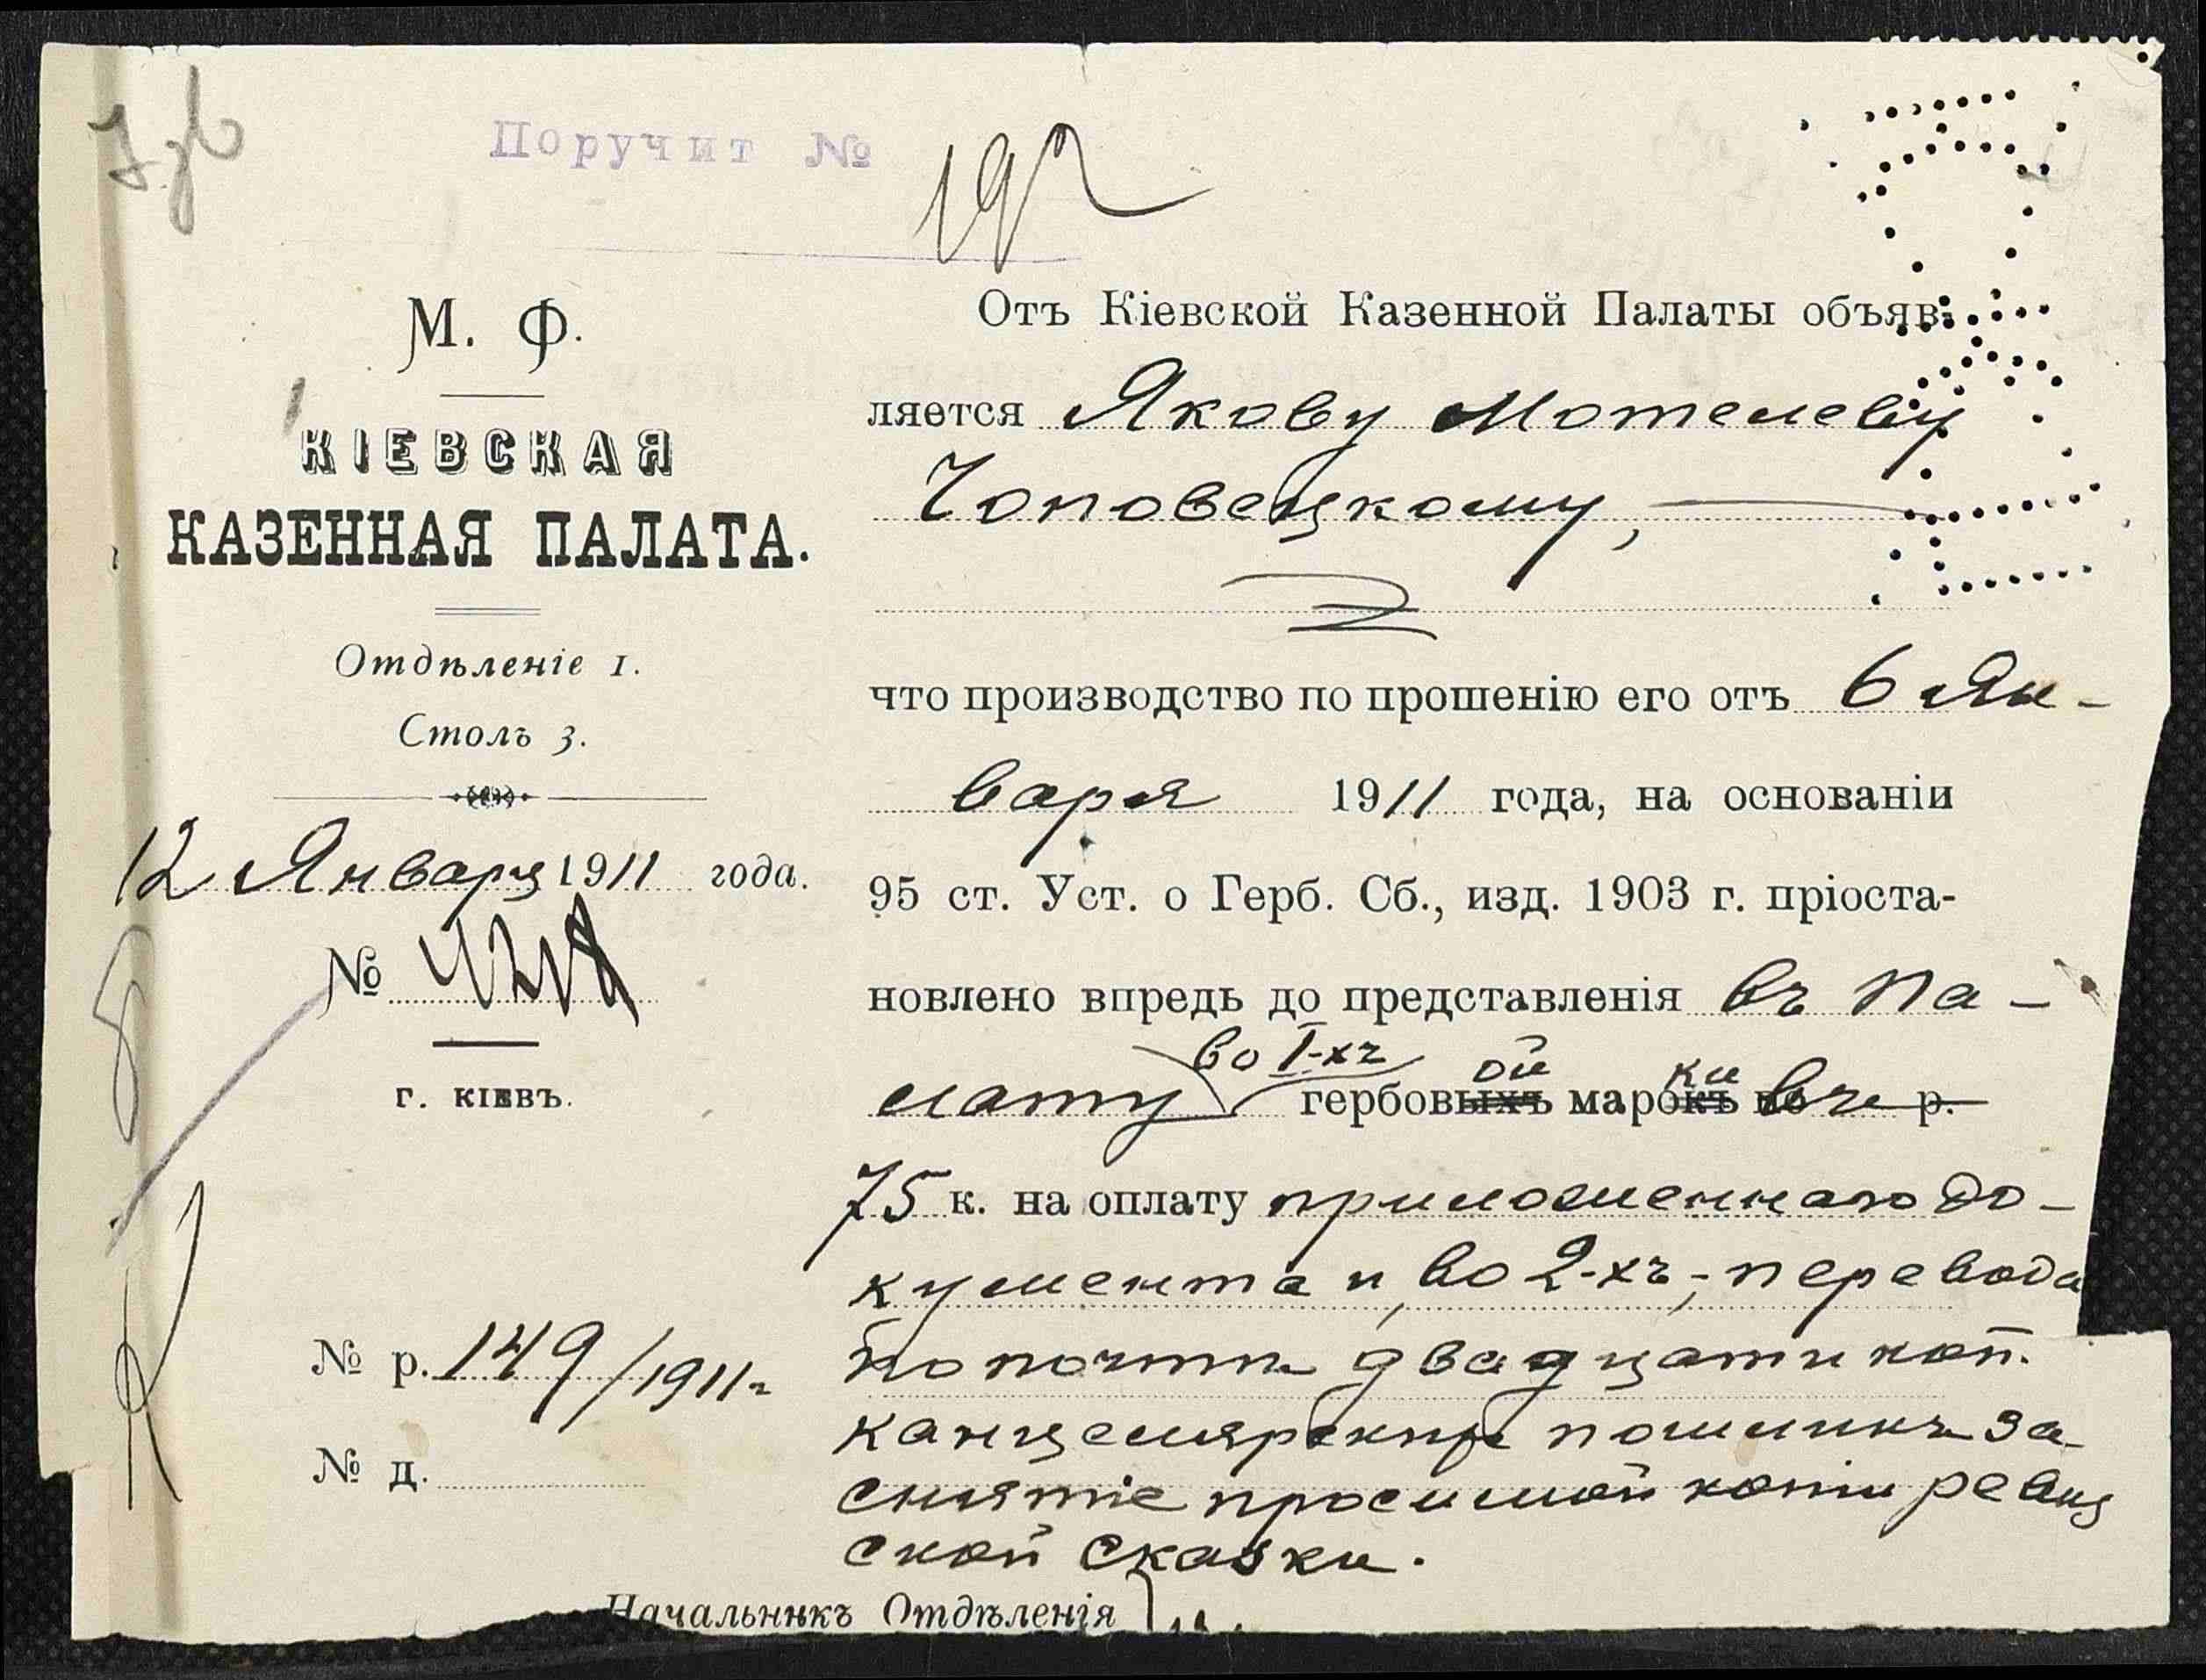 Поручит №
192
М. Ф.
КІЕВСКАЯ
КАЗЕННАЯ ПАЛАТА.
Отдѣленіе 1.
Столъ 3.
12 Января 1911 года.
№
г. КІЕВЪ.
№ р. 149/1911 г
№ д.
Отъ Кіевской Казенной Палаты объяв-
ляется Якову Мотелеву
Чоповецкому,
что производство по прошенію его отъ 6 Ян-
варя 1911 года, на основаніи
95 ст. Уст. о Герб. Сб., изд. 1903 г. пріоста-
новлено впредь до представленія въ Па-
во 1-хъ ой ки
лату гербовыхъ марокъ по въ р.
75 к. на оплату приложеннаго до-
кумента и, во 2-хъ,- перевода
по почтѣ двадцати коп.
канцелярскихъ пошлинъ за
снятіе просимой копіи ревиз
ской сказки.
Начальникъ Отдѣленія